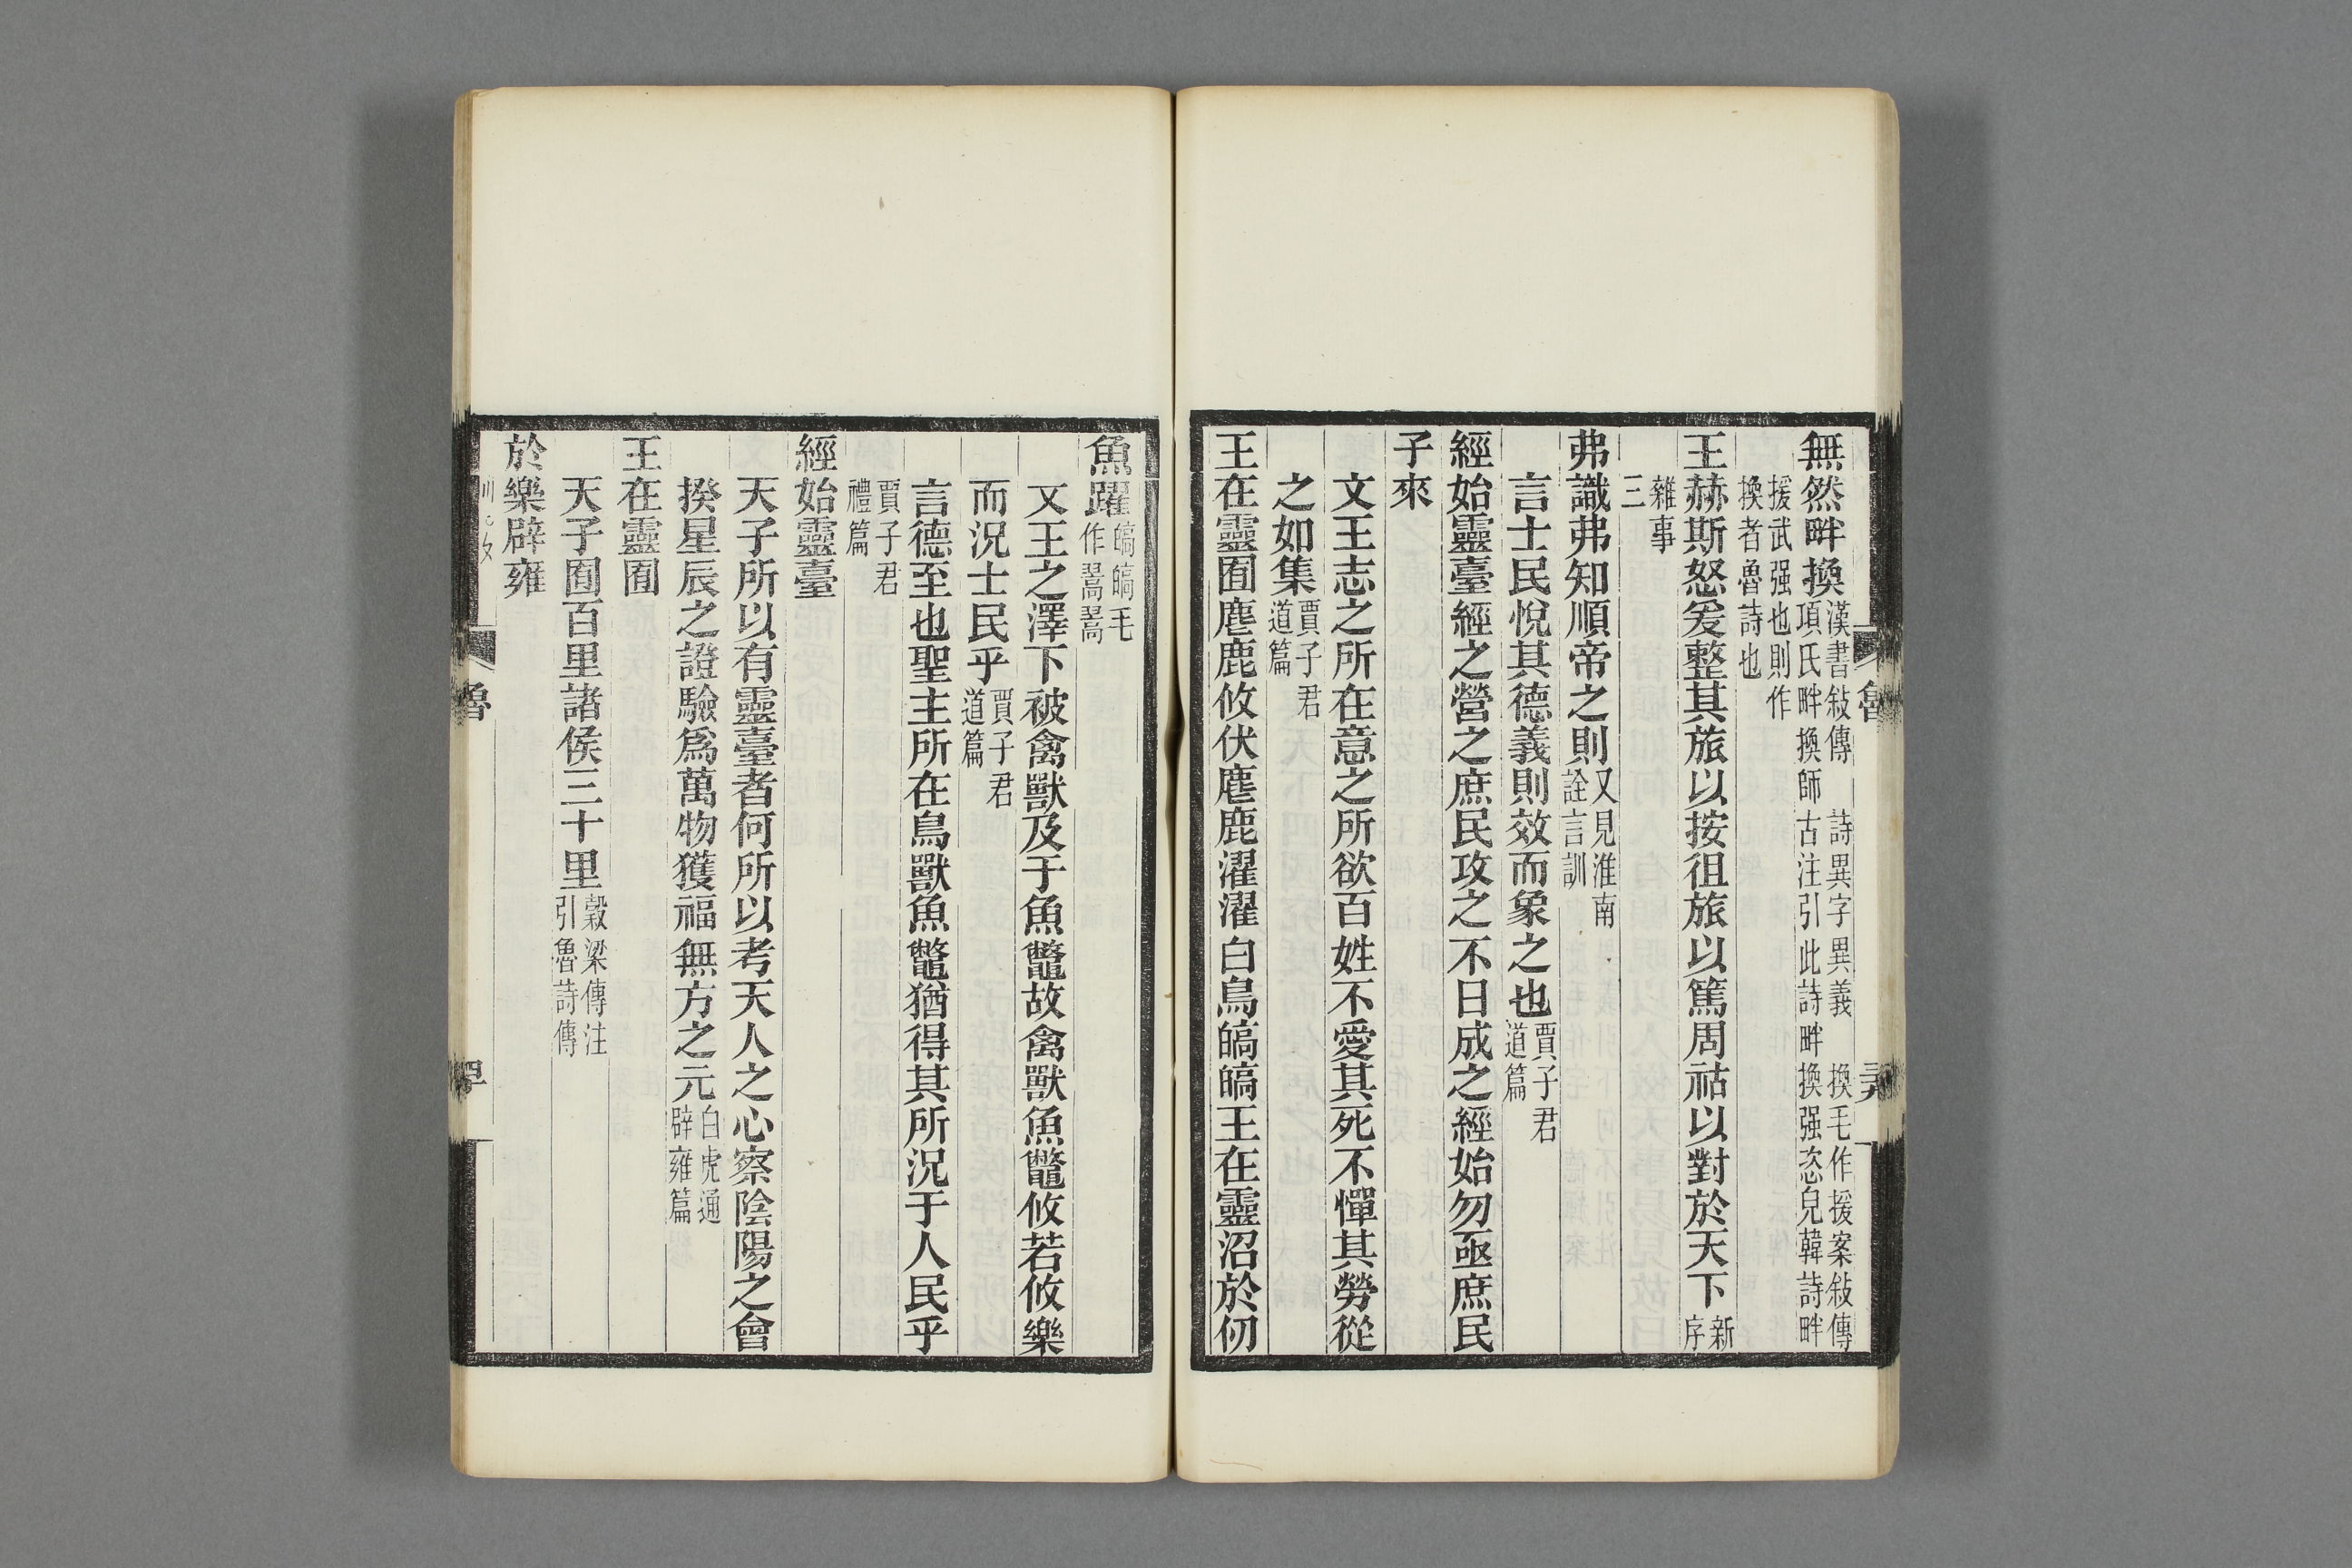 無然畔換漢書敍傳 詩異字異義 換毛作援案敍傳項氏畔換師古注引此詩畔換强恣皃韓詩畔
援武强也則作換者魯詩也
王赫斯怒爰整其旅以按徂旅以篤周祜以對於天下新序
雜事三
弗識弗知順帝之則又見淮南詮言訓
言士民悅其德義則效而象之也賈子君道篇
經始靈臺經之營之庶民攻之不日成之經始勿亟庶民
子來
文王志之所在意之所欲百姓不愛其死不憚其勞從
之如集賈子君道篇
王在靈囿麀鹿攸伏麀鹿濯濯白鳥皜皜王在靈沼於仞
魯
魚躍皜皜毛作翯翯
文王之澤下被禽獸及于魚鼈故禽獸魚鼈攸若攸樂
而況士民乎賈子君道篇
言德至也聖主所在鳥獸魚鼈猶得其所況于人民乎
賈子君禮篇
經始靈臺
天子所以有靈臺者何所以考天人之心察陰陽之會
揆星辰之證驗爲萬物獲福無方之元白虎通辟雍篇
王在靈囿
天子囿百里諸侯三十里穀梁傳注引魯詩傳
於樂辟雍
魯